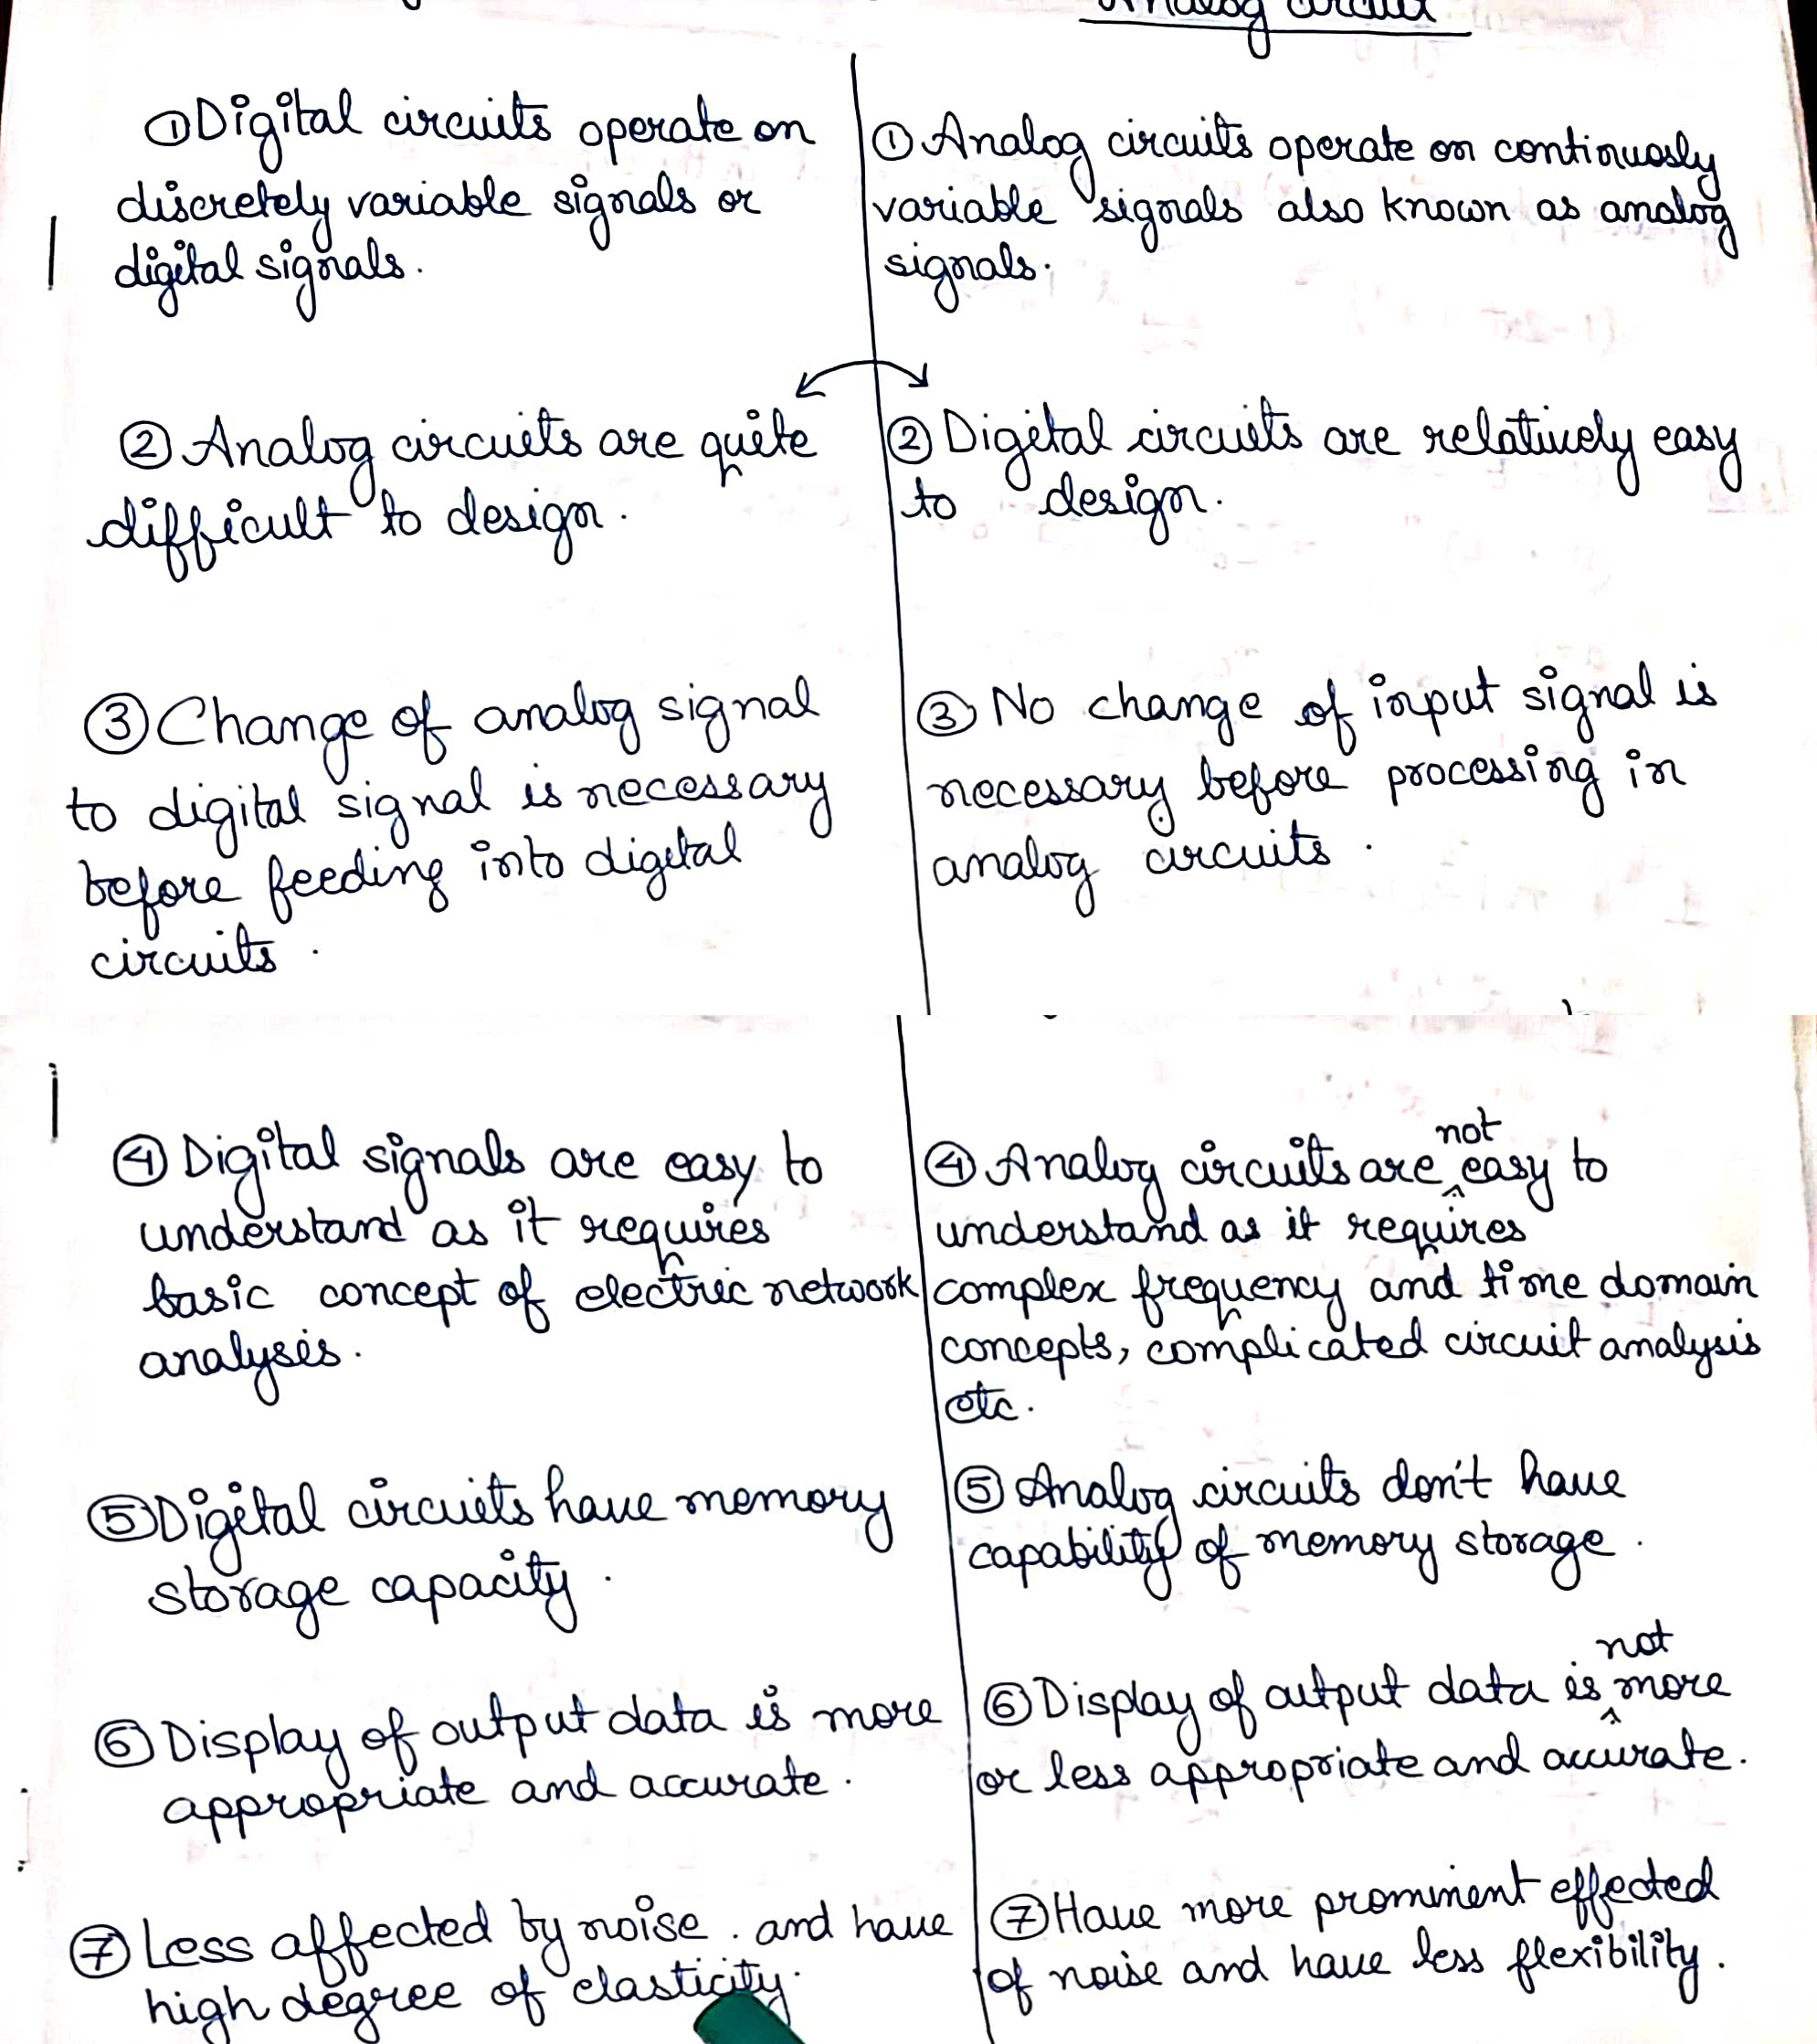 Analog circuit
① Digital circuits operate on
discretely variable signals or
digital signals.
① Analog circuits operate on continuosly
variable signals also known as analog
signals.
② Analog circuits are quite
difficult to design.
② Digital circuits are relatively easy
to design.
③ Change of analog signal
to digital signal is necessary
before feeding into digital
circuits.
③ No change of input signal is
necessary before processing in
analog circuits.
④ Digital signals are easy to
understand as it requires
basic concept of electric network
analysis.
④ Analog circuits are not easy to
understand as it requires
complex frequency and time domain
concepts, complicated circuit analysis
etc.
⑤ Digital circuits have memory
storage capacity.
⑤ Analog circuits don't have
capability of memory storage.
⑥ Display of output data is more
appropriate and accurate.
⑥ Display of output data is not more
or less appropriate and accurate.
⑦ Less affected by noise. and have
high degree of elasticity.
⑦ Have more prominent effected
of noise and have less flexibility.